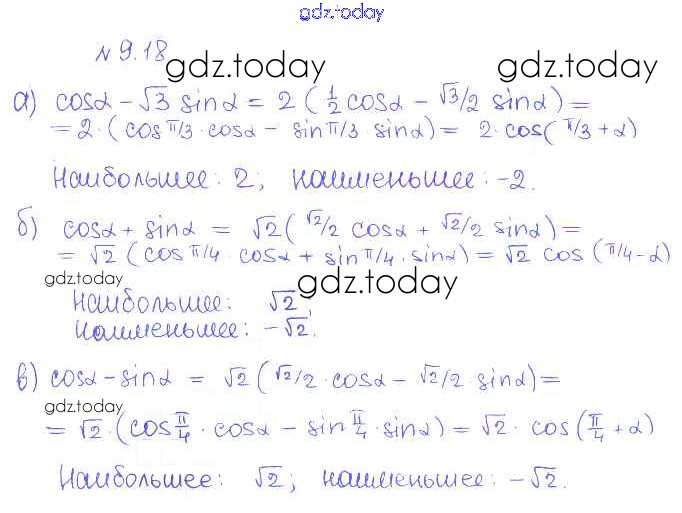 gdz.today
№ 9.18
gdz.today gdz.today
а) cosα - √3 sinα = 2 (1/2 cosα - √3/2 sinα) =
= 2 · (cos π/3 · cosα - sin π/3 · sinα) = 2 · cos(π/3 + α)
Наибольшее: 2; наименьшее: -2.
б) cosα + sinα = √2 (√2/2 cosα + √2/2 sinα) =
= √2 (cos π/4 · cosα + sin π/4 · sinα) = √2 cos (π/4 - α)
gdz.today gdz.today
Наибольшее: √2;
Наименьшее: -√2.
в) cosα - sinα = √2 (√2/2 · cosα - √2/2 · sinα) =
gdz.today
= √2 · (cos π/4 · cosα - sin π/4 · sinα) = √2 · cos(π/4 + α)
Наибольшее: √2; наименьшее: -√2.